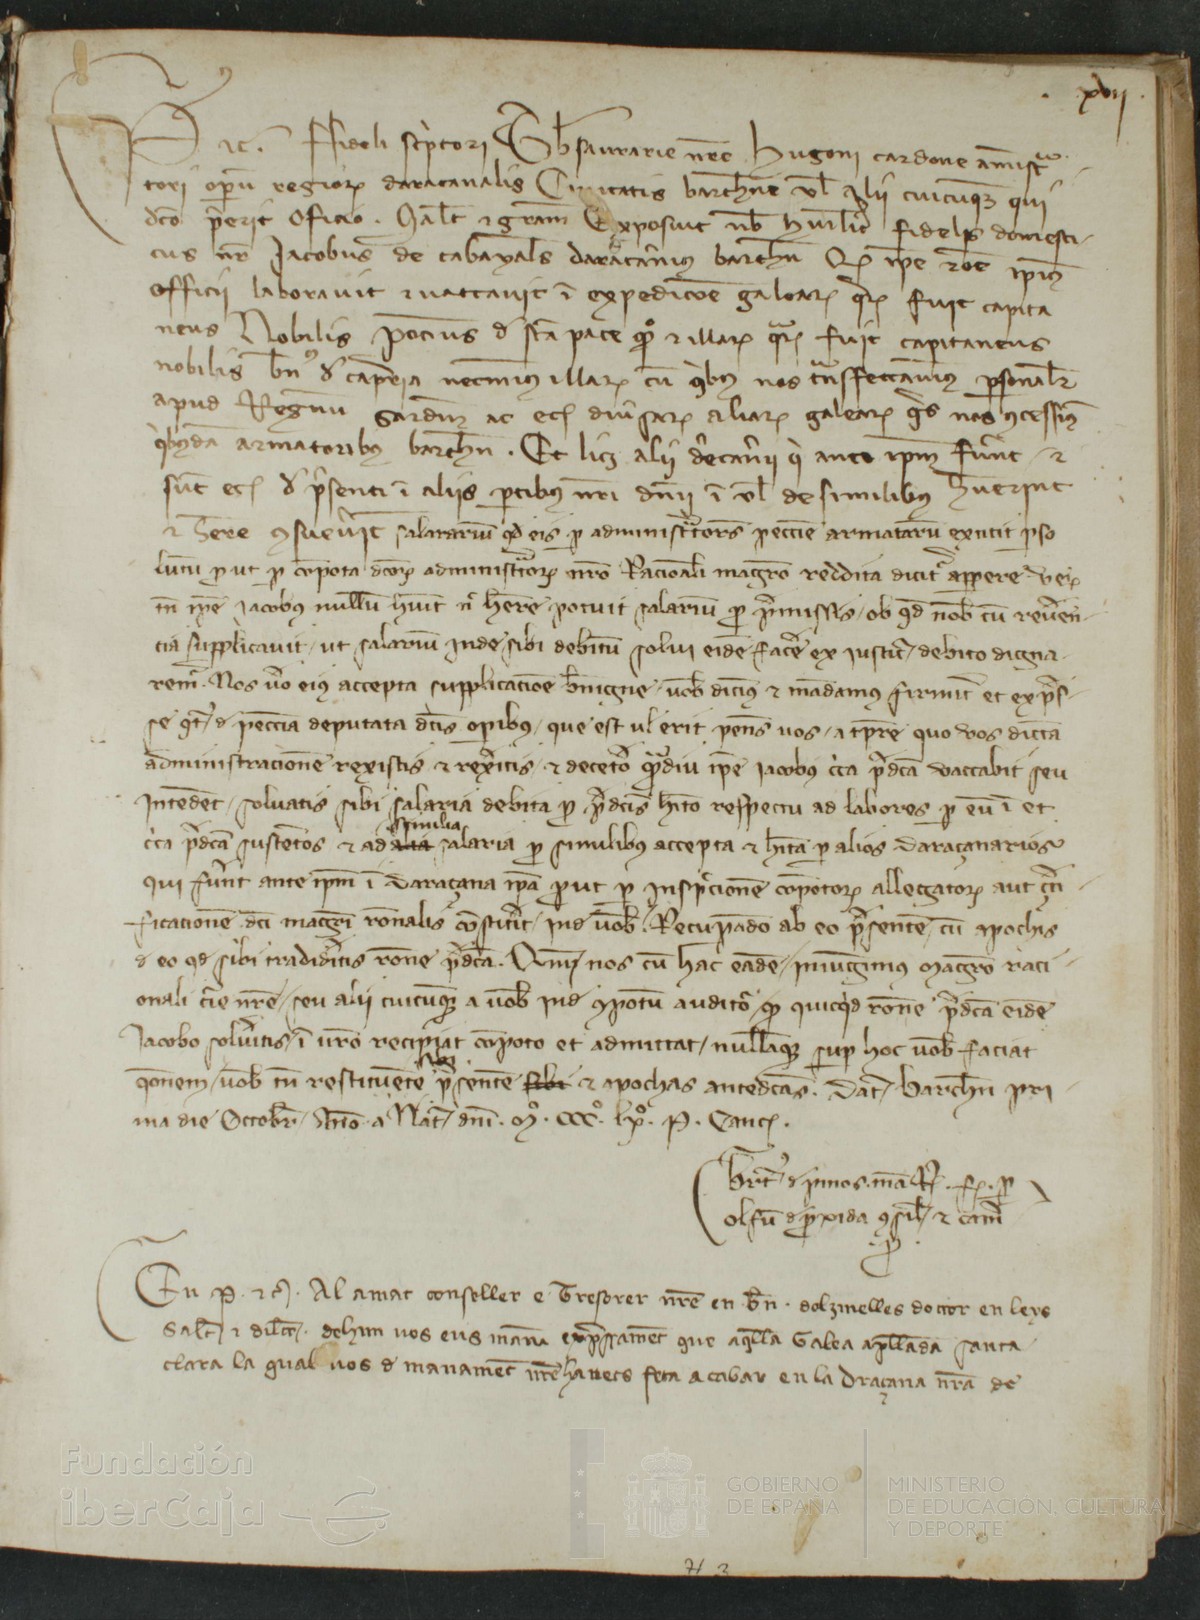 xvij
P. etc. Fideli scriptori Thesaurarie nostre Hugoni Cardone administra
tori operum regiorum daraçanalis Civitatis barchinone vel alii cuicumque qui
dicto preerit officio. Salutem et graciam Exposuit nobis humiliter fidelis domesti-
cus noster Jacobus de cabayals daraçanarius barchinone Quod ipse racione ipsius
officii laboravit et vaccavit in expedicione galearum quarum fuit capita
neus Nobilis Poncius de sancta pace quondam et illarum quarum fuit capitaneus
nobilis bernardus de capraria necnon illarum cum quibus nos transfretavimus personaliter
apud Regnum Sardinie ac eciam diversarum aliarum galearum quas nos concessimus
quibusdam armatoribus barchinone. Et licet alii draçanerii qui ante ipsum fuerunt et
sunt eciam de presenti in aliis partibus nostri dominii vel de similibus habuerint
et habere consueverint salarium quod eis per administratores peccunie armatarum extitit perso
lutum prout per compota dictorum administratorum nostro Racionali magistro reddita dicitur apparere verum
tamen ipse Jacobus nullum habuit nec habere potuit salarium pro premissis, ob quod nobis cum reveren-
cia supplicavit, ut salarium inde sibi debitum solvi eidem facere ex justicie debito digna-
remur. Nos vero eius accepta supplicatione benigne, vobis dicimus et mandamus firmiter et expres-
se quatenus de peccunia deputata dictis operibus, que est vel erit penes vos, a tempore quo vos dictam
administracionem rexistis et rexeritis, et decetero quamdiu ipse Jacobus circa predicta vaccabit seu
intendet, solvatis sibi salaria debita pro predictis habito respectu ad labores per eum in et
circa predicta sustentos et ad alia similia salaria pro similibus accepta et habita per alios daraçanarios
qui fuerunt ante ipsum in daraçana ipsa prout per inspeccionem compotorum allegatorum aut certi-
ficationem dicti magistri racionalis constiterit inde vobis. Recuperando ab eo presentem cum apochis
de eo quod sibi tradideritis racione predicta. Quoniam nos cum hac eadem, iniungimus magistro raci-
onali curie nostre, seu alii cuicumque a vobis inde compotum auditori quod quicquid racione predicta eidem
Jacobo solveritis in vestro recipiat compoto et admittat, nullamque super hoc vobis faciat
questionem, vobis tamen restituente presentem sibi et apochas antedictas. Datum Barchinone pri-
ma die Octobris Anno a Nativitate domini Mº CCCº lxº. P. Cancellarius.
olfum de proxida consiliarium et camerlengum
En P. etc. Al amat conseller e Tresorer nostre en Bernat dolzinelles doctor en leys
Salut et dileccio. dehim vos eus manam expressament que aquella Galea apellada santa
clara la qual vos de manament nostre havets feta acabar en la Draçana nostra de